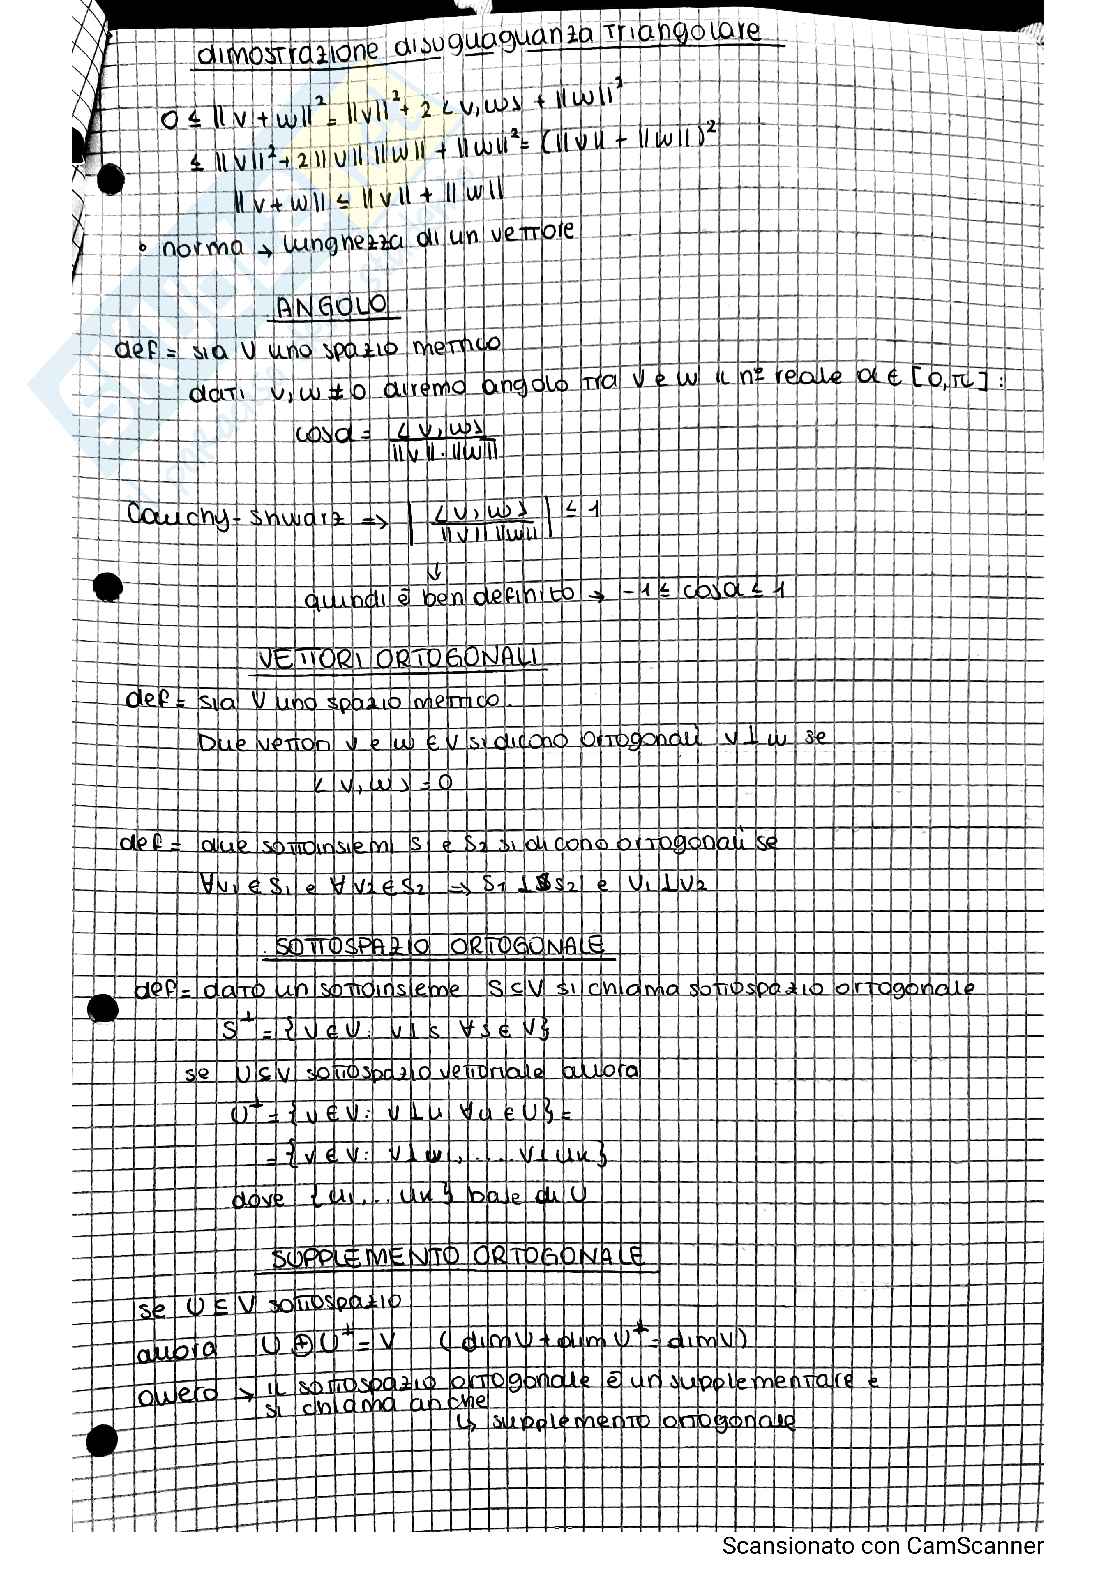 dimostrazione disuguaguanza triangolare
0 ≤ ||v+w||² = ||v||² + 2<v,w> + ||w||²
≤ ||v||² + 2||v|| ||w|| + ||w||² = (||v|| + ||w||)²
||v+w|| ≤ ||v|| + ||w||
• norma → lunghezza di un vettore
ANGOLO
def = sia V uno spazio metrico
dati v,w ≠ 0 diremo angolo tra v e w il n° reale α ∈ [0,π]:
cosα = <v,w> / ||v||·||w||
Cauchy-Shwarz => | <v,w> / ||v|| ||w|| | ≤ 1
↓
quindi è ben definito → -1 ≤ cosα ≤ 1
VETTORI ORTOGONALI
def = sia V uno spazio metrico.
Due vettori v e w ∈ V si dicono ortogonali v⊥w se
<v,w> = 0
def = due sottoinsiemi S₁ e S₂ si dicono ortogonali se
∀v₁ ∈ S₁ e ∀v₂ ∈ S₂ → S₁ ⊥ S₂ e v₁⊥v₂
SOTTOSPAZIO ORTOGONALE
def = dato un sottoinsieme S⊆V si chiama sottospazio ortogonale
S⊥ = {v∈V: v⊥s ∀s∈V}
se U⊆V sottospazio vettoriale allora
U⊥ = {v∈V: v⊥u ∀u∈U} =
= {v∈V: v⊥u₁, .... v⊥uk}
dove {u₁...uk} base di U
SUPPLEMENTO ORTOGONALE
se U⊆V sottospazio
allora U⊕U⊥ = V (dimU + dimU⊥ = dimV)
ovvero → il sottospazio ortogonale è un supplementare e
si chiama anche
↳ supplemento ortogonale
Scansionato con CamScanner